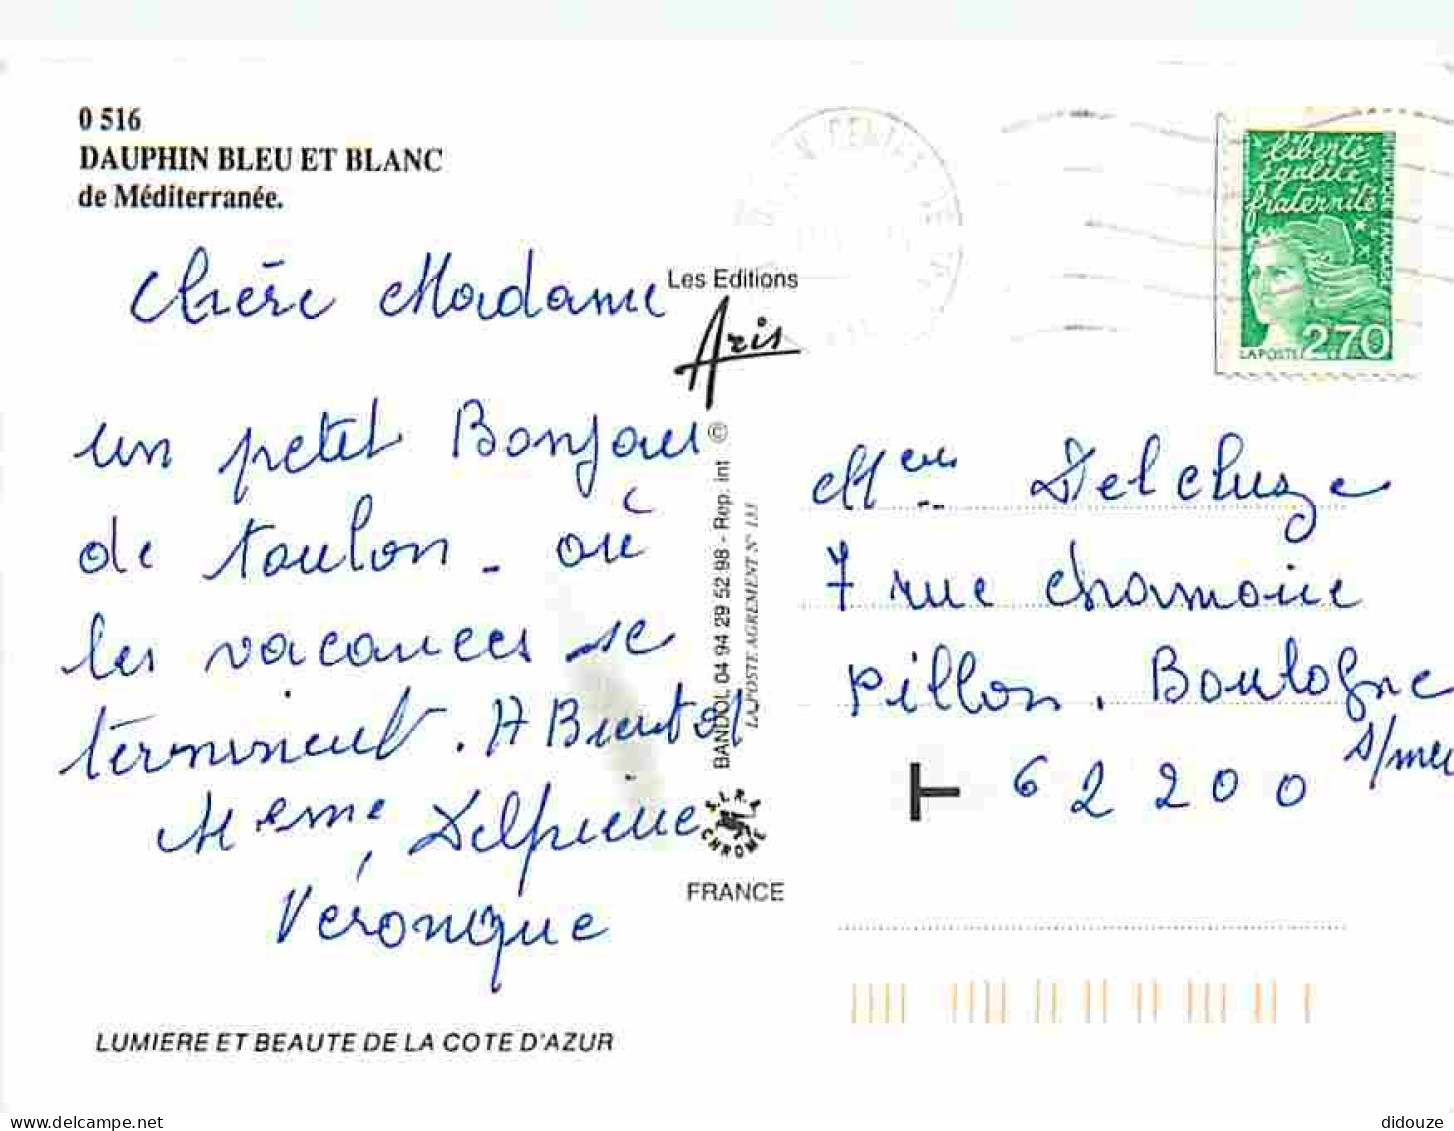 0 516
DAUPHIN BLEU ET BLANC
de Méditerranée.
Chère Madame
un petit Bonjour
de toulon - où
les vacances se
terminent. A Bientot
Véronique
LUMIERE ET BEAUTE DE LA COTE D'AZUR
Les Editions
Aris
BANDOL 04 94 29 52 98 - Rep. int ©
LA POSTE AGREMENT N° 133
S.L.R.P
CHROME
FRANCE
liberté
égalité
fraternité
REPUBLIQUE FRANCAISE
LA POSTE 2,70
Delcluze
7 rue chamoine
pillon. Boulogne
s/mer
62200
T
didouze